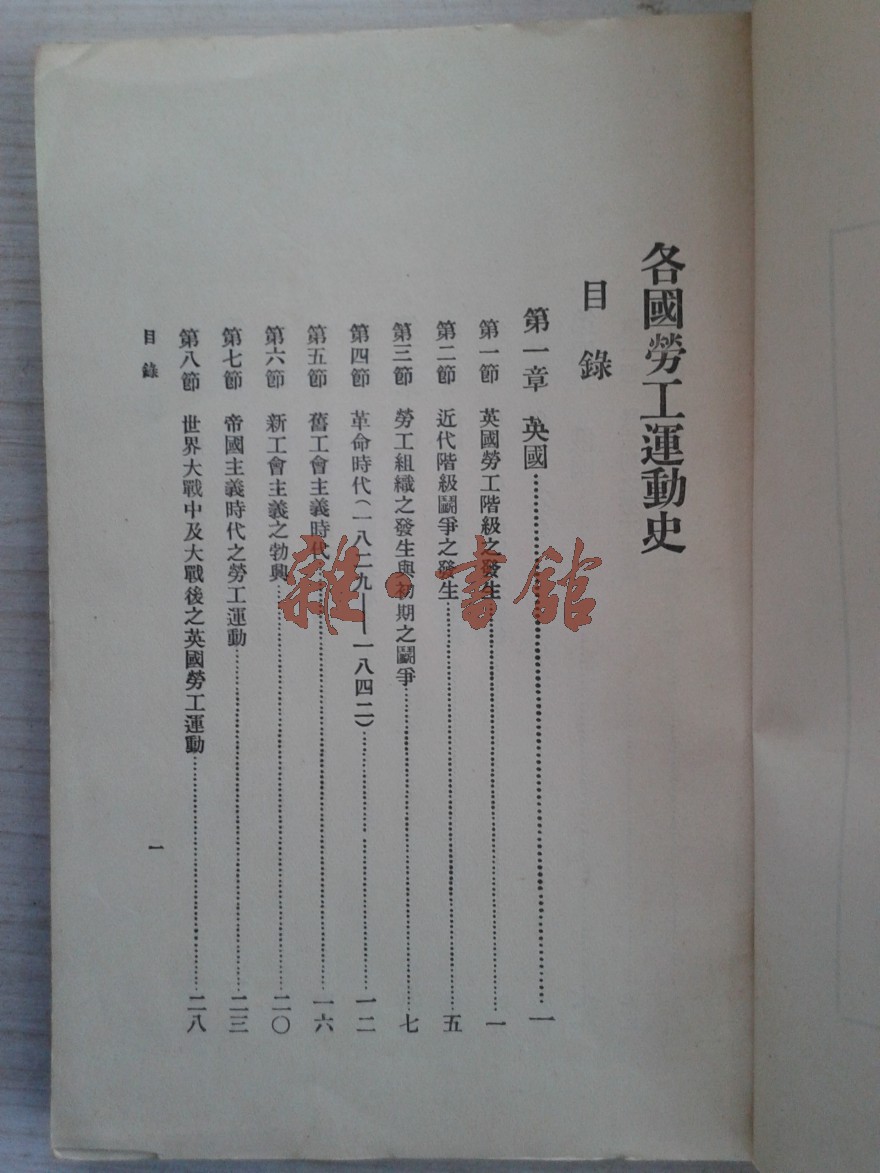 各國勞工運動史
目錄
第一章 英國……一
第一節 英國勞工階級之發生……一
第二節 近代階級鬭爭之發生……五
第三節 勞工組織之發生與初期之鬭爭……七
第四節 革命時代(一八二九——一八四二)……一二
第五節 舊工會主義時代……一六
第六節 新工會主義之勃興……二〇
第七節 帝國主義時代之勞工運動……二三
第八節 世界大戰中及大戰後之英國勞工運動……二八
目錄 一
雜·書館